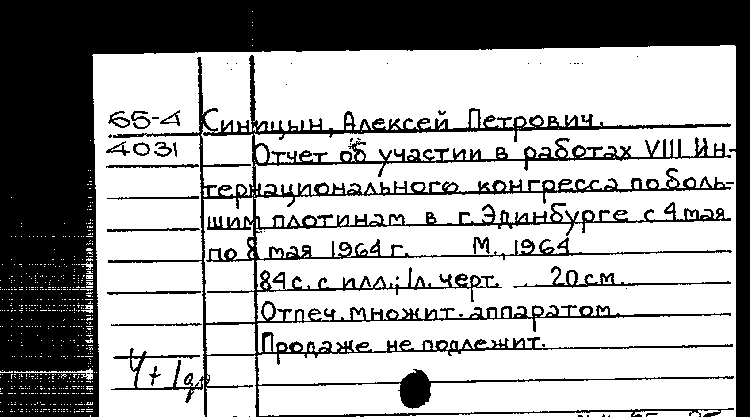 65-4 Синицын, Алексей Петрович.
4031 Отчет об участии в работах VIII Ин-
тернационального конгресса по боль-
шим плотинам в г. Эдинбурге с 4 мая
по 8 мая 1964 г. М., 1964
84 с. с илл.; 1 л. черт. 20 см.
Отпеч. множит. аппаратом.
Продаже не подлежит.
4 + 1 др